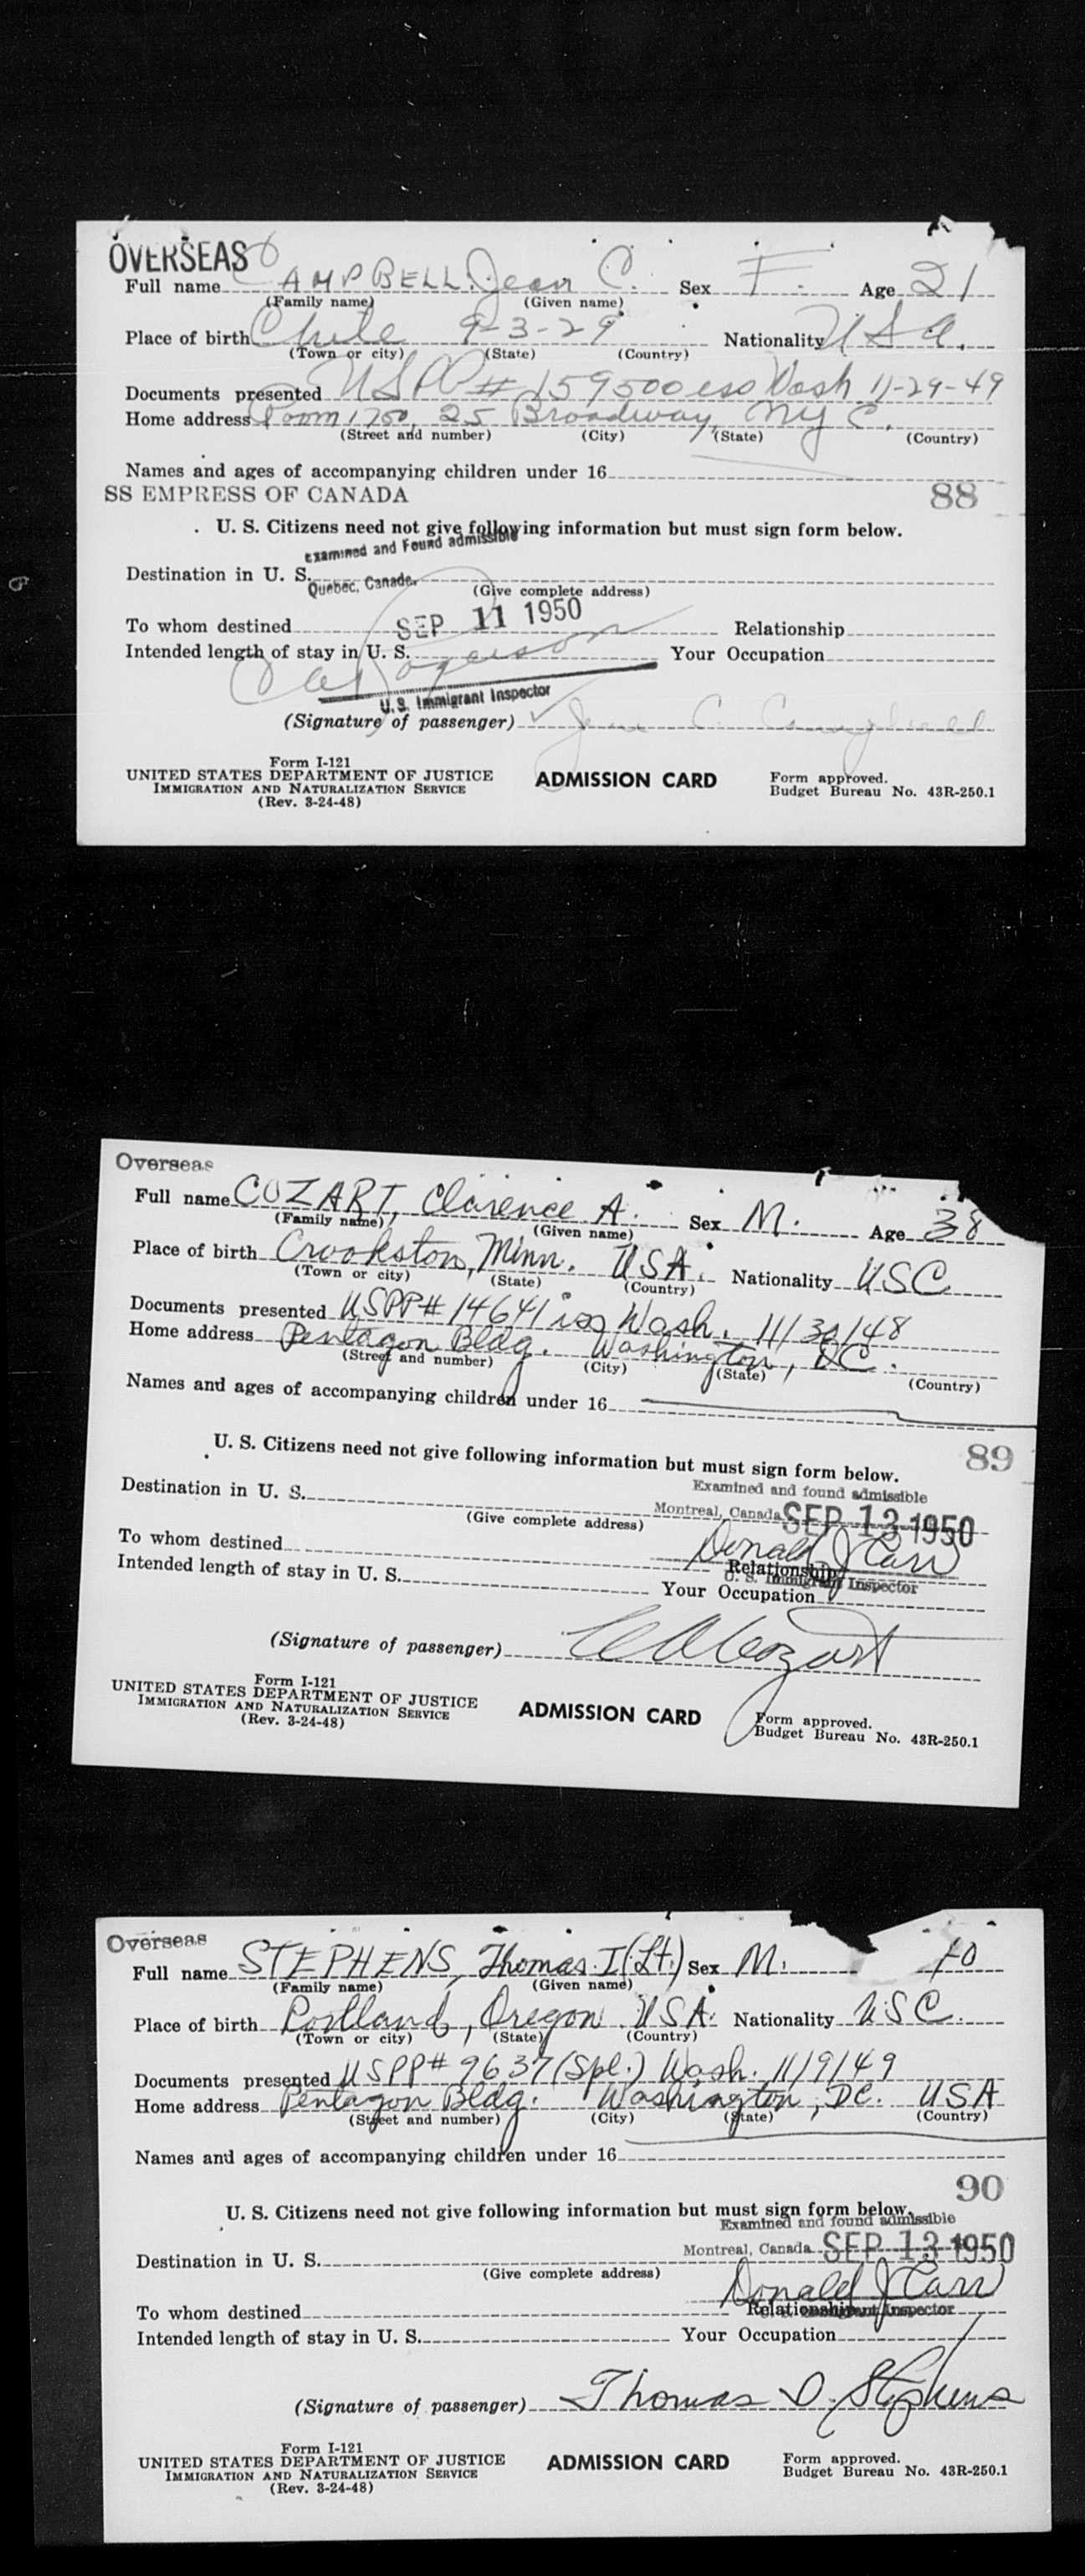 OVERSEAS
Full name CAMPBELL, Jean C. Sex F. Age 21
(Family name) (Given name)
Place of birth Chile 9-3-29 Nationality USA.
(Town or city) (State) (Country)
Documents presented USPP# 159500 iss Wash 11-29-49
Home address Room 1750, 25 Broadway, NY C.
(Street and number) (City) (State) (Country)
Names and ages of accompanying children under 16
SS EMPRESS OF CANADA 88
U. S. Citizens need not give following information but must sign form below.
Examined and Found admissible
Destination in U. S.
Quebec, Canada.
(Give complete address)
SEP 11 1950
To whom destined Relationship
Intended length of stay in U. S. Your Occupation
U.S. Immigrant Inspector
(Signature of passenger) Jean C. Campbell
Form I-121
UNITED STATES DEPARTMENT OF JUSTICE
IMMIGRATION AND NATURALIZATION SERVICE
(Rev. 3-24-48)
ADMISSION CARD
Form approved.
Budget Bureau No. 43R-250.1
Overseas
Full name COZART, Clarence A. Sex M. Age 38
(Family name) (Given name)
Place of birth Crookston, Minn. USA. Nationality USC
(Town or city) (State) (Country)
Documents presented USPP# 14641 iss Wash. 11/30/48
Home address Pentagon Bldg. Washington, DC.
(Street and number) (City) (State) (Country)
Names and ages of accompanying children under 16
89
U. S. Citizens need not give following information but must sign form below.
Examined and found admissible
Destination in U. S.
Montreal, Canada SEP 13 1950
(Give complete address)
Donald J Carr
To whom destined Relationship
U. S. Immigrant Inspector
Intended length of stay in U. S. Your Occupation
(Signature of passenger) C A Cozart
Form I-121
UNITED STATES DEPARTMENT OF JUSTICE
IMMIGRATION AND NATURALIZATION SERVICE
(Rev. 3-24-48)
ADMISSION CARD
Form approved.
Budget Bureau No. 43R-250.1
Overseas
Full name STEPHENS, Thomas I (Lt.) Sex M. 40
(Family name) (Given name)
Place of birth Portland, Oregon. USA. Nationality USC.
(Town or city) (State) (Country)
Documents presented USPP# 9637 (Spl.) Wash. 11/9/49
Home address Pentagon Bldg. Washington, DC. USA
(Street and number) (City) (State) (Country)
Names and ages of accompanying children under 16
90
U. S. Citizens need not give following information but must sign form below.
Examined and found admissible
Montreal, Canada SEP 13 1950
Destination in U. S.
(Give complete address)
Donald J Carr
To whom destined Relationship
Immigrant Inspector
Intended length of stay in U. S. Your Occupation
(Signature of passenger) Thomas D. Stephens
Form I-121
UNITED STATES DEPARTMENT OF JUSTICE
IMMIGRATION AND NATURALIZATION SERVICE
(Rev. 3-24-48)
ADMISSION CARD
Form approved.
Budget Bureau No. 43R-250.1